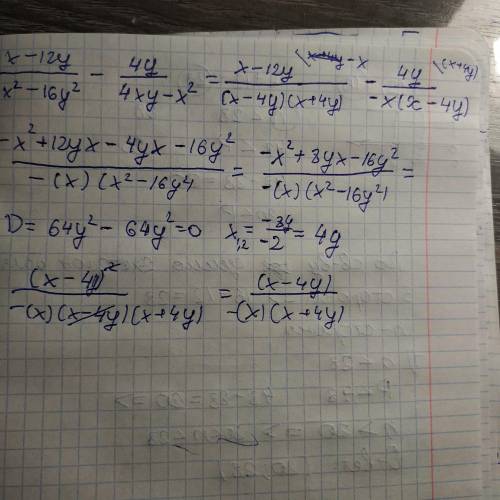 x-12y / x²-16y² - 4y / 4xy-x² = x-12y \-x / (x-4y)(x+4y) - 4y \(x+4y) / -x(x-4y)
-x²+12yx-4yx-16y² / -(x)(x²-16y²) = -x²+8yx-16y² / -(x)(x²-16y²) =
D= 64y²-64y²=0 x₁,₂ = -8y / -2 = 4y
(x-4y)² / -(x)(x-4y)(x+4y) = (x-4y) / -(x)(x+4y)